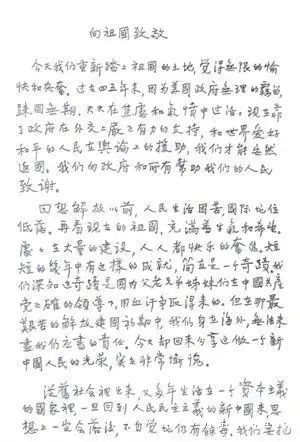 向祖國致敬
今天我們重新踏上祖國的土地，覺得無限的愉
快和興奮。过去四五年来，因為美國政府無理的羈留，
歸國無期，天天在焦慮和氣憤中过活。現在靠
了政府在外交上嚴正有力的支持，和世界爱好
和平的人民在輿論上的援助，我們才能安然
返國。我們向政府和所有幫助我們的人民
致谢。
回想解放以前，人民生活困苦，國際地位
低落。再看現在的祖國，充滿着生氣和希望，
處處在大量的建設，人人都快乐的奮進。短
短的幾年中有这樣的成就，簡直是一个奇蹟。我
們深知这奇蹟是因为父老兄弟姊妹们在中國共產
党正確的領導下，用血汗争取得来的。但在那最
艱苦的解放建國初期中，我們身在海外，無法来
盡我们应盡的責任。今天却回来分享这做一个新
中國人民的光荣，实在非常慚愧。
從舊社会裡出来，又多年生活在一个資本主義
的國家裡，一旦回到人民民主主義的新中國来，思
想上一定会落後，不自覺地仍有錯誤。我們要抱